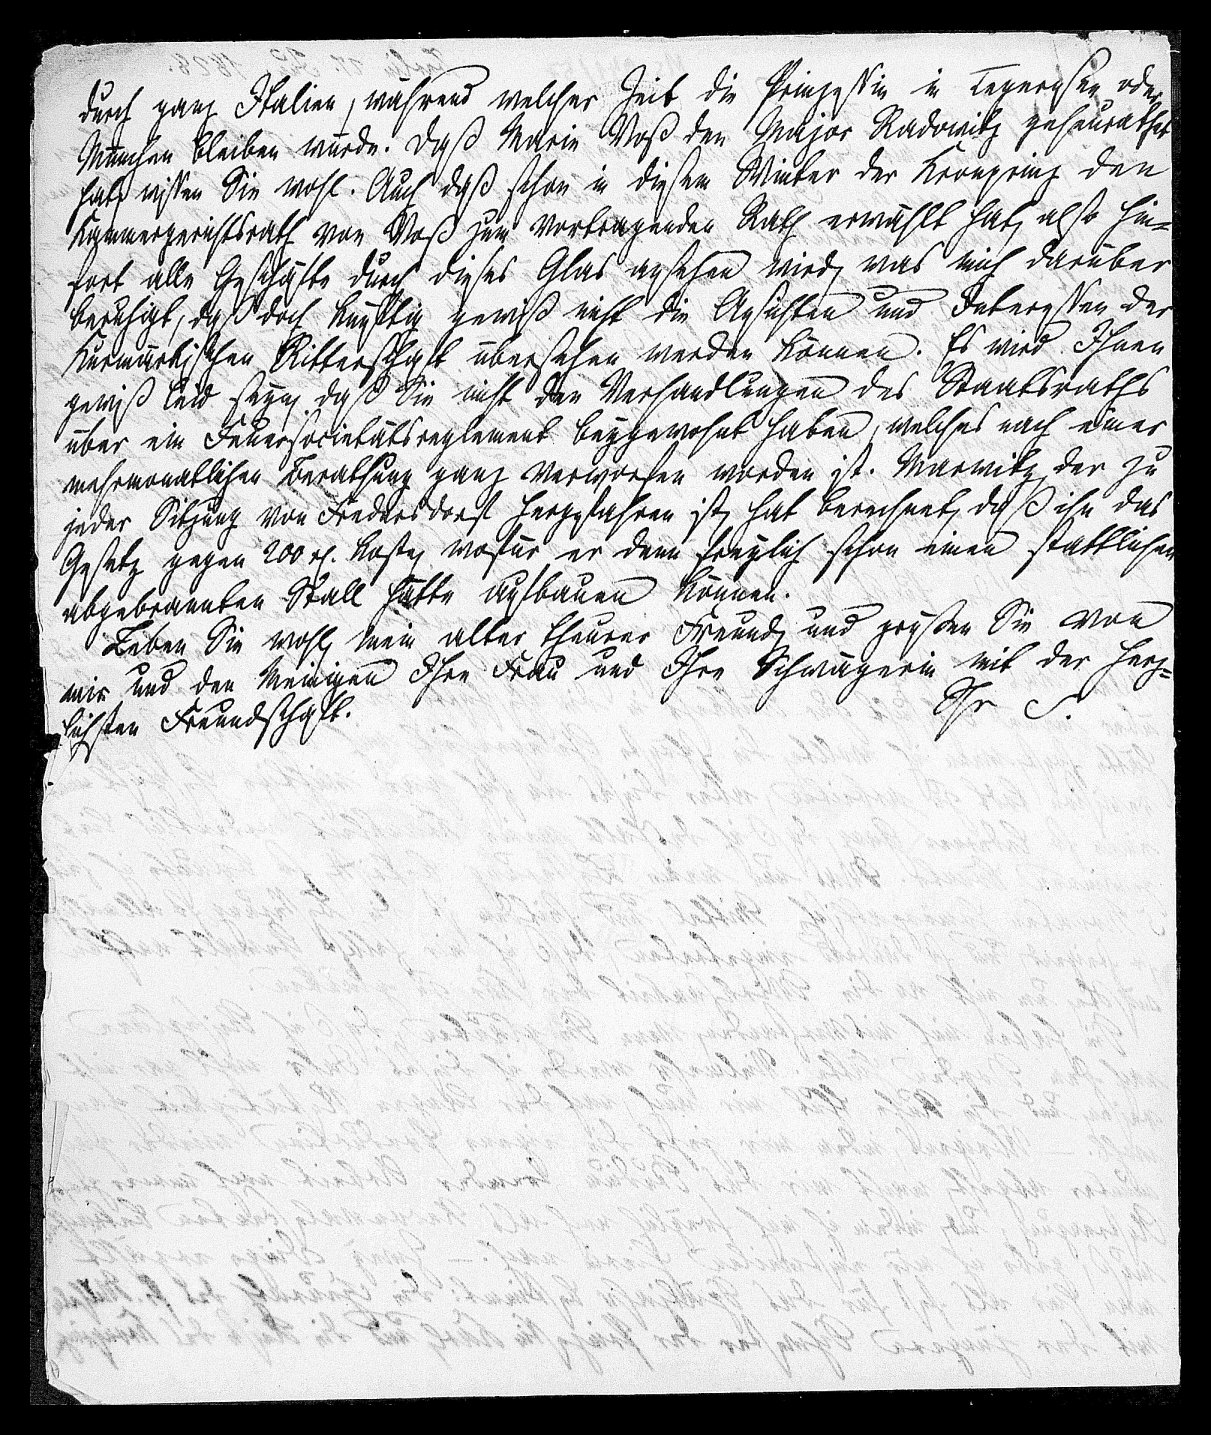 durch ganz Italien, während welcher Zeit die Prinzessin in Tegernsee oder
München bleiben würde. Daß Marie Voß den Major Radowitz geheurathet
hat, wissen Sie wohl. Auch daß schon in diesem Winter der Kronprinz den
Kammergerichtsrath von Voß zum vortragenden Rath erwählt hat, also hin=
fort alle Geschäfte durch dieses Glas ansehen wird, was mich darüber
beruhigt, daß doch künftig gewiß nicht die Ansichten und Interessen der
Kurmärkischen Ritterschaft übersehen werden können. Es wird Ihnen
gewiß leid seyn, daß Sie nicht den Verhandlungen des Staatsraths
über ein Feuersocietätsreglement beygewohnt haben, welches nach einer
mehrmonatlichen Berathung ganz verworfen worden ist. Marwitz, der zu
jeder Sitzung von Fredersdorf hergefahren ist, hat berechnet, daß ihn das
Gesetz gegen 200 rh. koste, wofür er denn freylich schon einen stattlichen
abgebrannten Stall hätte aufbauen können.
Leben Sie wohl, mein alter theurer Freund, und grüßen Sie von
mir und den Meinigen Ihre Frau und Ihre Schwägerin mit der herz=
lichsten Freundschaft.
Ihr S.